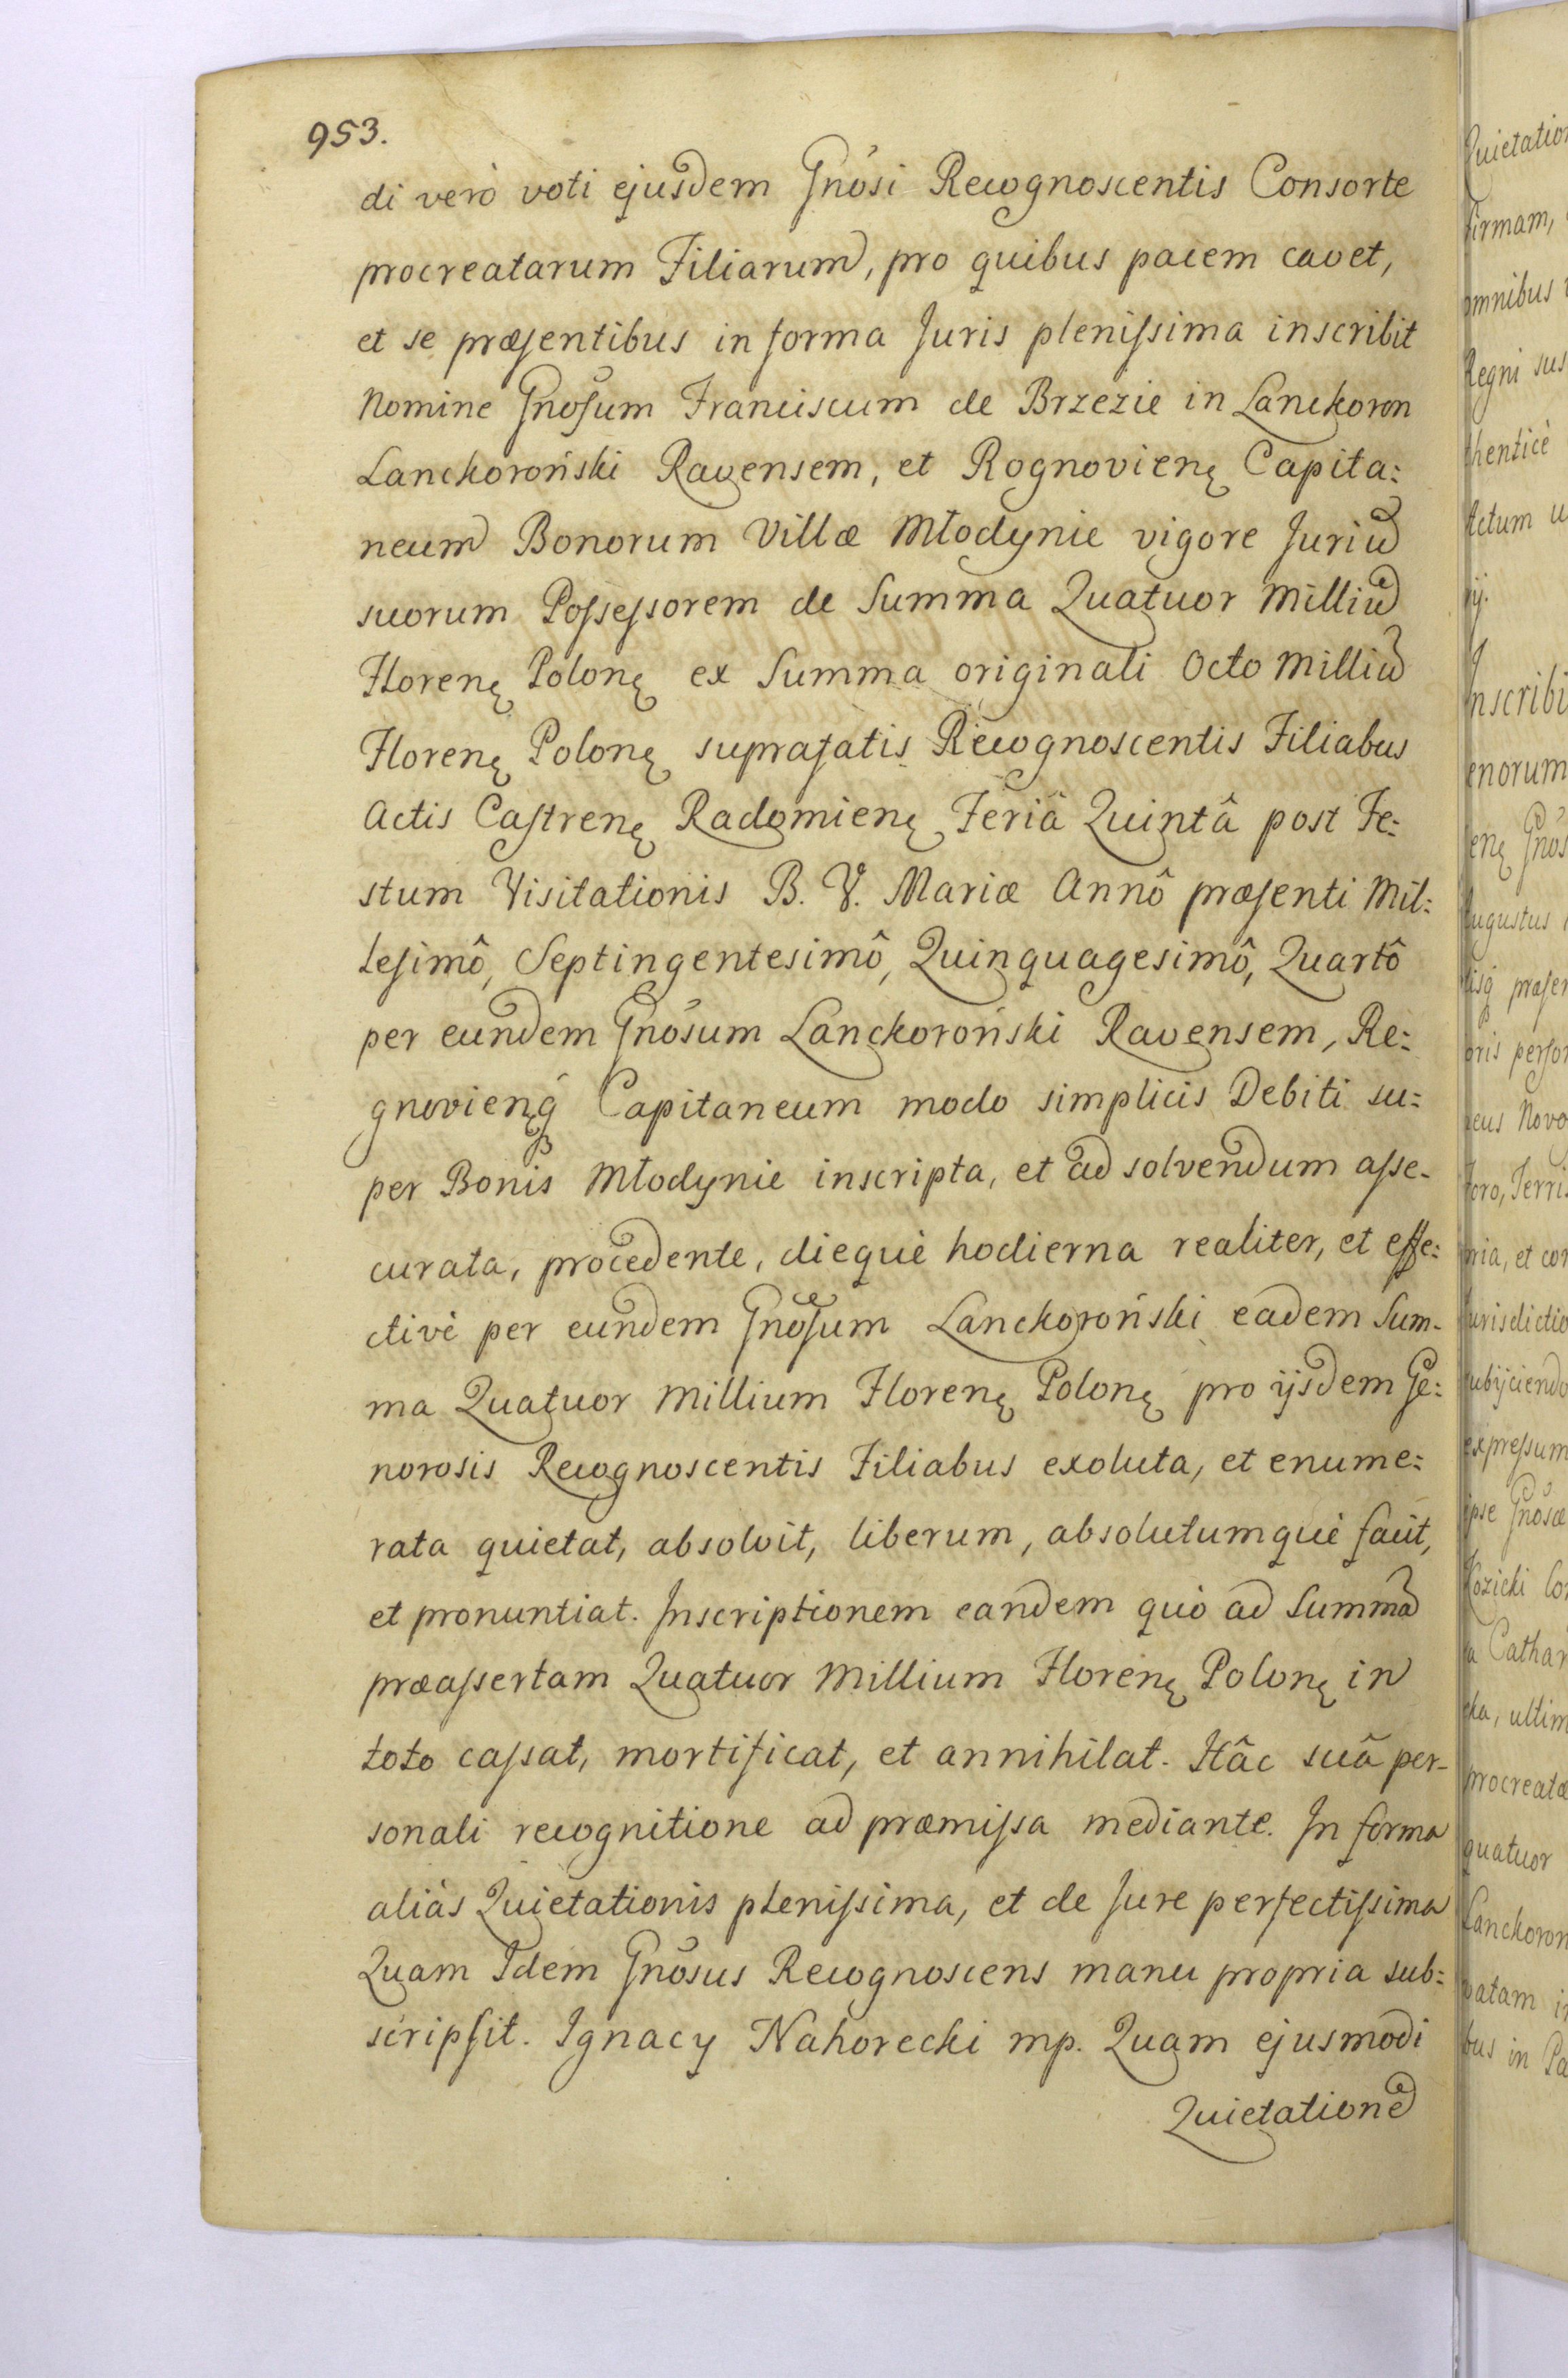 953.
di verò voti ejusdem Gnosi Recognoscentis Consorte
procreatarum Filiarum, pro quibus pacem cavet,
et se præsentibus in forma Juris plenissima inscribit
Nomine Gnosum Franciscum de Brzezie in Lanckoron
Lanckoroński Ravensem, et Rognovienę Capita:
neum Bonorum Villæ Młodynie vigore Juriū
suorum Possessorem de Summa Quatuor Milliū
Florenę Polonę ex Summa originali Octo Milliū
Florenę Polonę suprafatis Recognoscentis Filiabus
Actis Castrenę Radomienę Feriâ Quintâ post Fe:
stum Visitationis B. V. Mariæ Annô præsenti Mil:
lesimô, Septingentesimô, Quinquagesimô, Quartô
per eundem Gnosum Lanckoroński Ravensem, Re:
gnovienęq́ Capitaneum modo simplicis Debiti su:
per Bonis Młodynie inscripta, et ad solvendum asse-
curata, procedente, dieque hodierna realiter, et effe:
ctivè per eundem Gnosum Lanckoroński eadem Sum-
ma Quatuor Millium Florenę Polonę pro ijsdem Ge:
norosis Recognoscentis Filiabus exoluta, et enume:
rata quietat, absolvit, liberum, absolutumquè facit,
et pronuntiat. Inscriptionem eandem quò ad Summā
præassertam Quatuor Millium Florenę Polonę in
toto cassat, mortificat, et annihilat. Hâc suâ per-
sonali recognitione ad præmissa mediante. In forma
aliàs Quietationis plenissima, et de Jure perfectissima
Quam Idem Gnosus Recognoscens manu propria sub:
scripsit. Ignacy Nahorecki mp. Quam ejusmodi
Quietationē